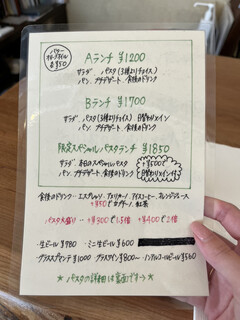 Aランチ ¥1200
サラダ パスタ(3種よりチョイス)
パン プチデザート 食後のドリンク
Bランチ ¥1700
サラダ パスタ(3種よりチョイス) 日替わりメイン
パン プチデザート 食後のドリンク
限定スペシャルパスタランチ ¥1850
サラダ 本日のスペシャルパスタ
パン プチデザート 食後のドリンク
+¥500で
日替わりメイン
食後のドリンク… エスプレッソ アメリカーノ アイスコーヒー オレンジジュース
+¥50でカプチーノ、紅茶
パスタ大盛り… +¥300で1.5倍 +¥400で2倍
・生ビール ¥780 ・ミニ生ビール ¥600
・グラススプマンテ ¥1000 ・グラスワイン ¥800〜 ・ノンアルコールビール ¥560
* パスタの詳細は裏面です→ *